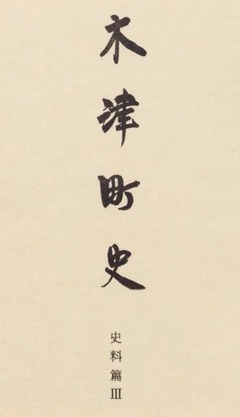 木津町史
史料篇Ⅲ